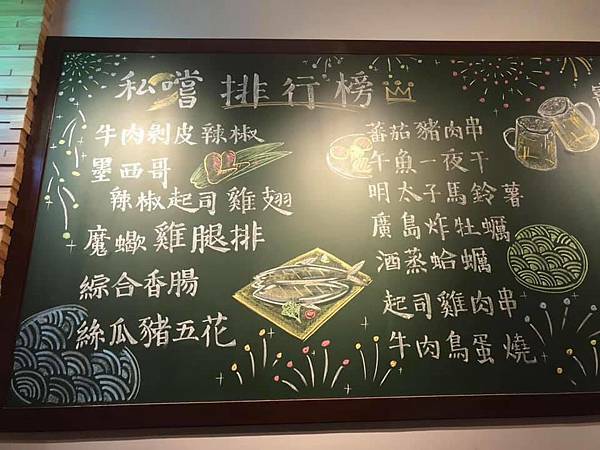 私嚐排行榜
牛肉剝皮辣椒
墨西哥
辣椒起司雞翅
魔蠍雞腿排
綜合香腸
絲瓜豬五花
蕃茄豬肉串
午魚一夜干
明太子馬鈴薯
廣島炸牡蠣
酒蒸蛤蠣
起司雞肉串
牛肉鳥蛋燒